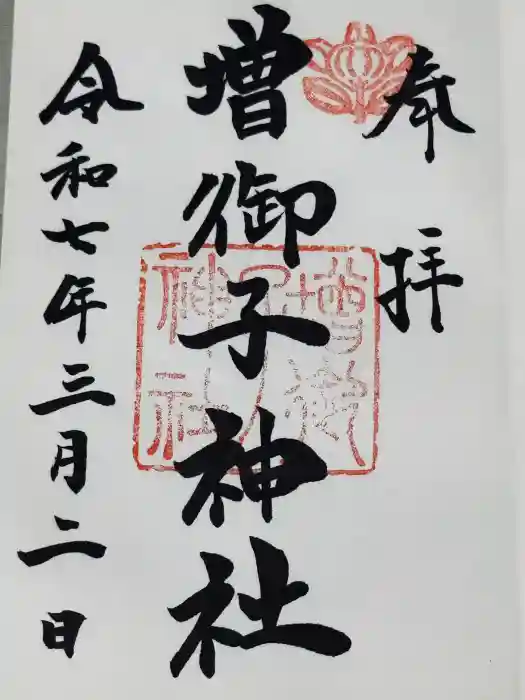 奉拝
増御子神社
令和七年三月二日
増御子神社